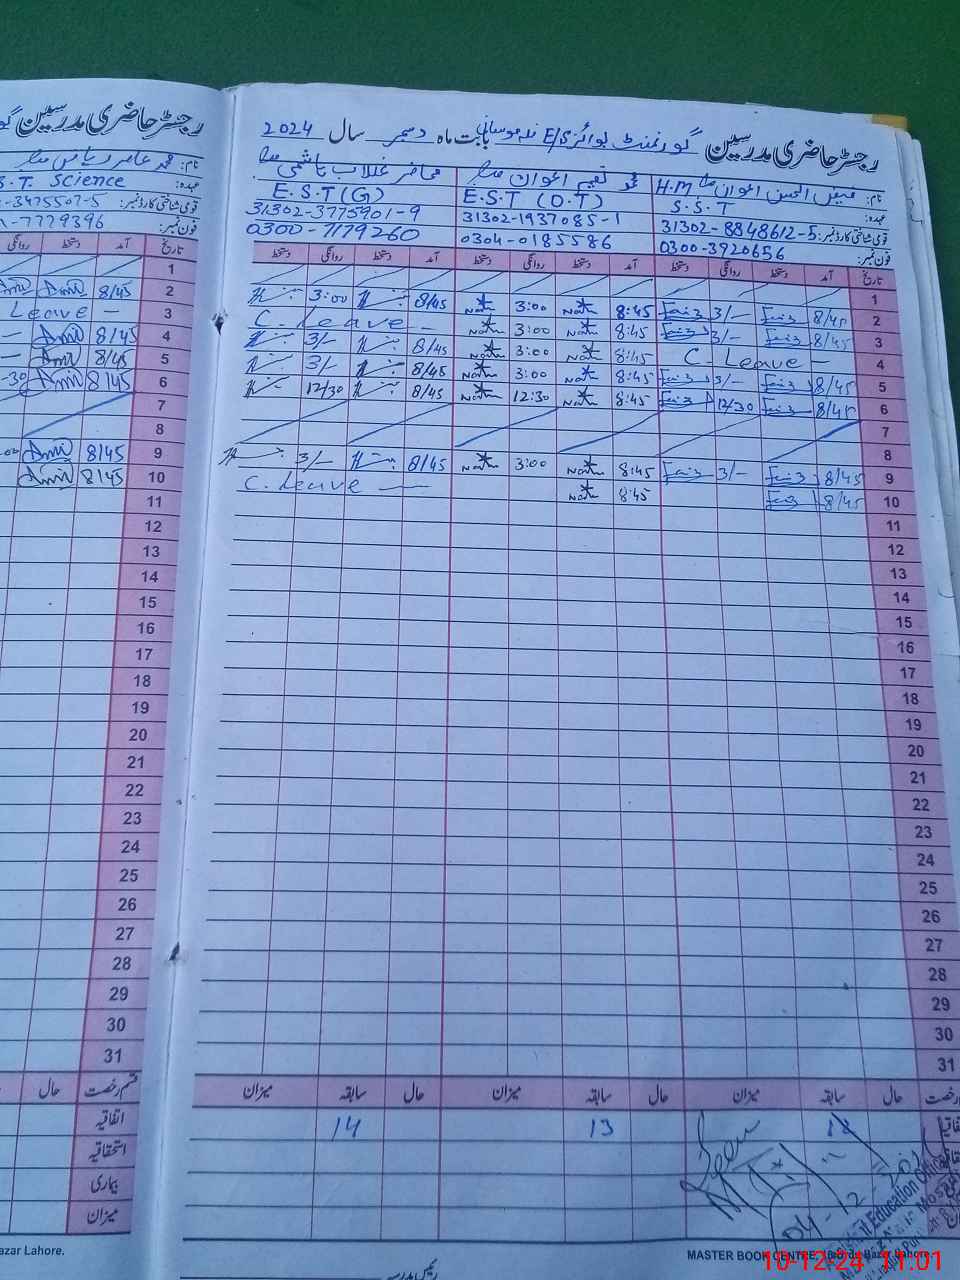 رجسٹر حاضری مدرسین گورنمنٹ بوائز E/S بابت ماہ دسمبر سال 2024
رجسٹر حاضری مدرسین
نام: فیض الحسن اعوان H.M
محمد نعیم اعوان صاحب
عہدہ: S.S.T
E.S.T (O.T)
E.S.T (G)
قومی شناختی کارڈ نمبر: 31302-8848612-5
31302-1937085-1
31302-3775901-9
فون نمبر: 0300-3920656
0304-0185586
0300-7179260
تاریخ آمد دستخط روانگی دستخط آمد دستخط روانگی دستخط آمد دستخط روانگی دستخط
1
2 8/45 Faiz 3/- Faiz 8:45 3:00 8/45 3:00
3 8/45 Faiz 3/- Faiz 8:45 3:00 C. Leave —
4 C. Leave — 8:45 3:00 8/45 3/-
5 8/45 Faiz 3/- Faiz 8:45 3:00 8/45 3/-
6 8/45 Faiz 12/30 Faiz 8:45 12:30 8/45 12/30
7
8
9 8/45 Faiz 3/- Faiz 8:45 3:00 8/45 3/-
10 8/45 Faiz 8:45 C. Leave —
11
12
13
14
15
16
17
18
19
20
21
22
23
24
25
26
27
28
29
30
31
رخصت حال سابقہ میزان حال سابقہ میزان حال سابقہ میزان
13 14
Seen
MASTER BOOK CENTRE, 16 Urdu Bazar Lahore.
نام: محمد عامر ریاض صاحب
عہدہ: S.T. Science
قومی شناختی کارڈ نمبر: -3475507-5
فون نمبر: -7779396
تاریخ آمد دستخط روانگی
1
2 8/45
3 Leave —
4 8/45
5 8/45
6 8/45 -30
7
8
9 8/45
10 8/45
11
12
13
14
15
16
17
18
19
20
21
22
23
24
25
26
27
28
29
30
31
قسم رخصت حال
اتفاقیہ
استحقاقیہ
بیماری
میزان
azar Lahore.
10-12-24 11:01